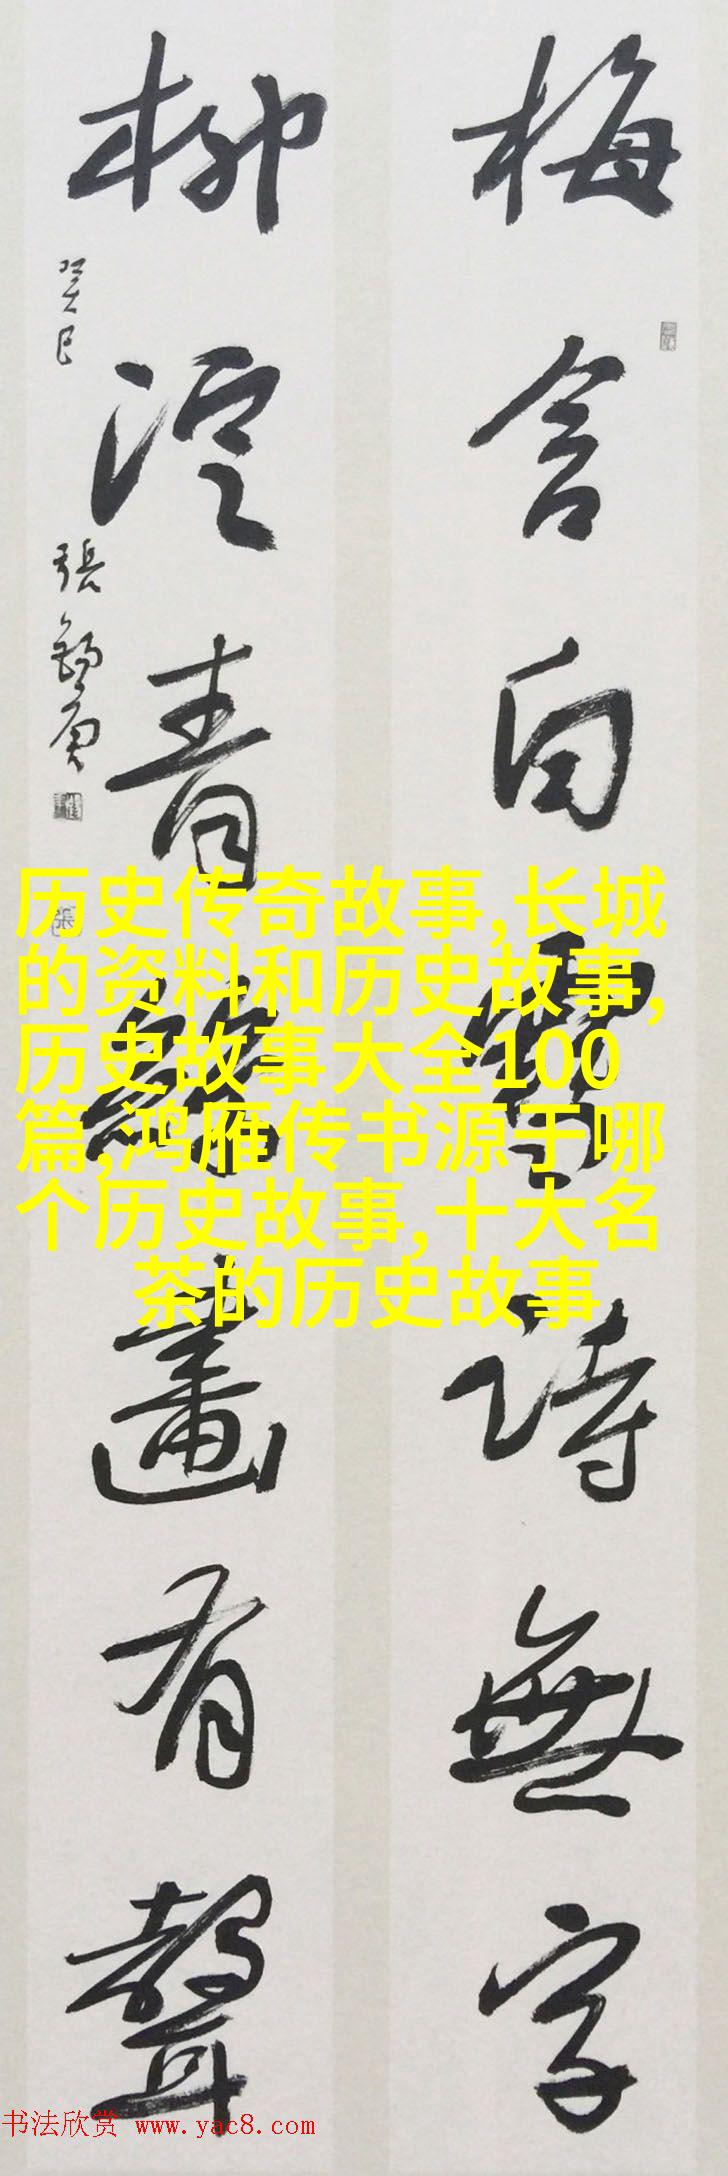 梅含白雪詩無字
柳淀青畫有聲
癸巳
張
历史传奇故事,长城
的资料和历史故事,
历史故事大全100
篇,鸿雁传书源于哪
个历史故事,十大名
茶的历史故事
书法欣赏 www.yac8.com